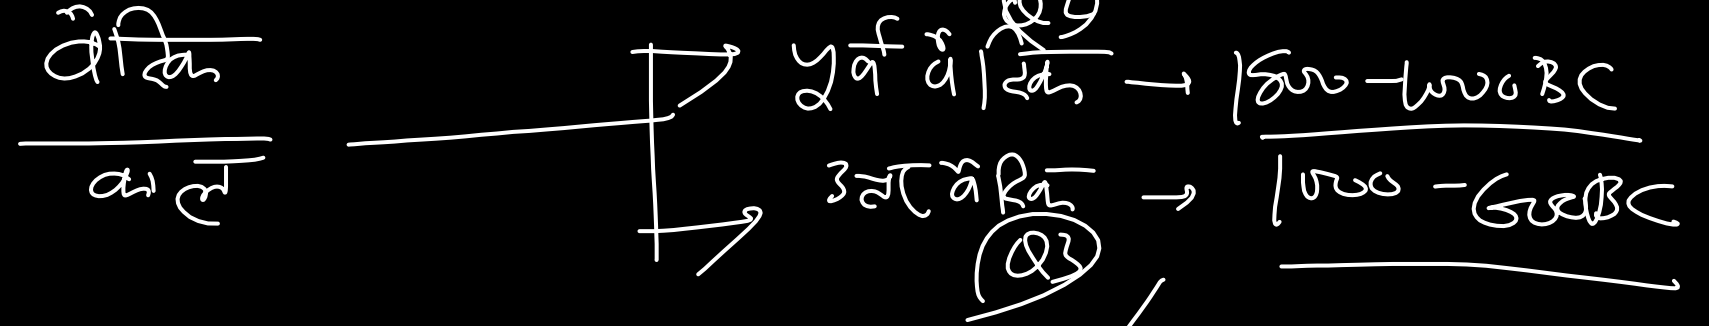 वैदिक
काल
पूर्व वैदिक → 1500-1000BC
उत्तर वैदिक → 1000-600BC
Q3